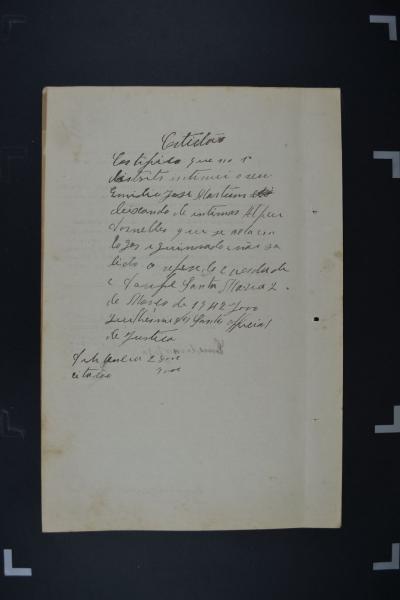 Certidão
Certifico que no 1º
distrito intimei o seu
Emilio José Martins
deixando de intimar Alfeu
Dornelles que se acha em
logar ignorado não sa
bido o referido é verdade
e dou fé Santa Maria 2
de Março de 1942 João
Guilherme dos Santos official
de Justiça
2
citação